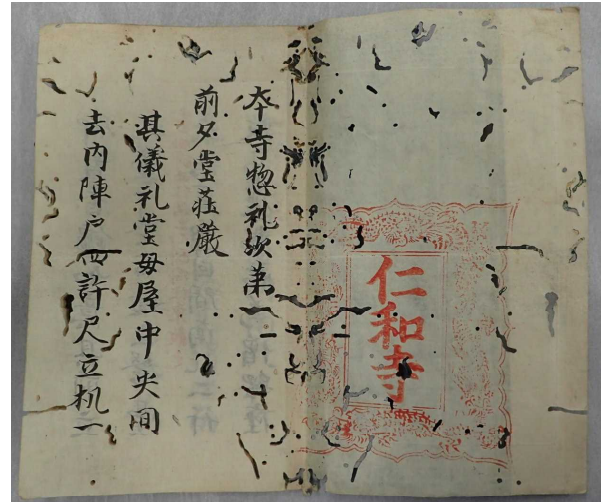 仁和寺
本寺惣礼次第
前夕堂荘厳
其儀礼堂母屋中央間
去内陣戸四許尺立机一